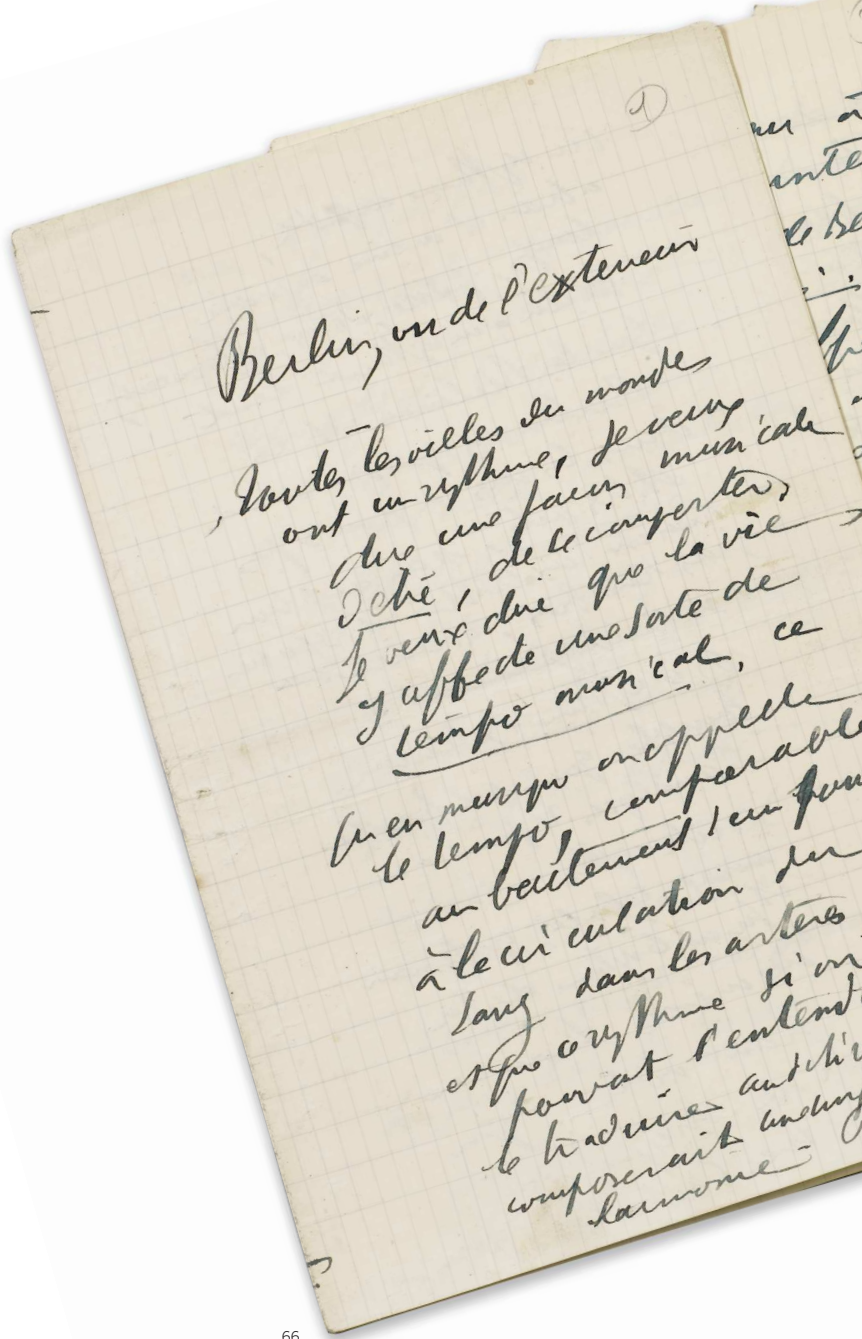 1
Berlin, vu de l'exterieur
Toutes les villes du monde
ont un rythme, je veux
dire une façon musicale
, de se comporter,
Je veux dire que la vie
y affecte une sorte de
tempo musical, ce
qu'en musique on appelle
le tempo, comparable
au battement d'un pou
à la circulation du
sang dans les artères
et que ce rythme si on
pouvait l'entend
le traduire
composerait
harmonie -
de Be
66